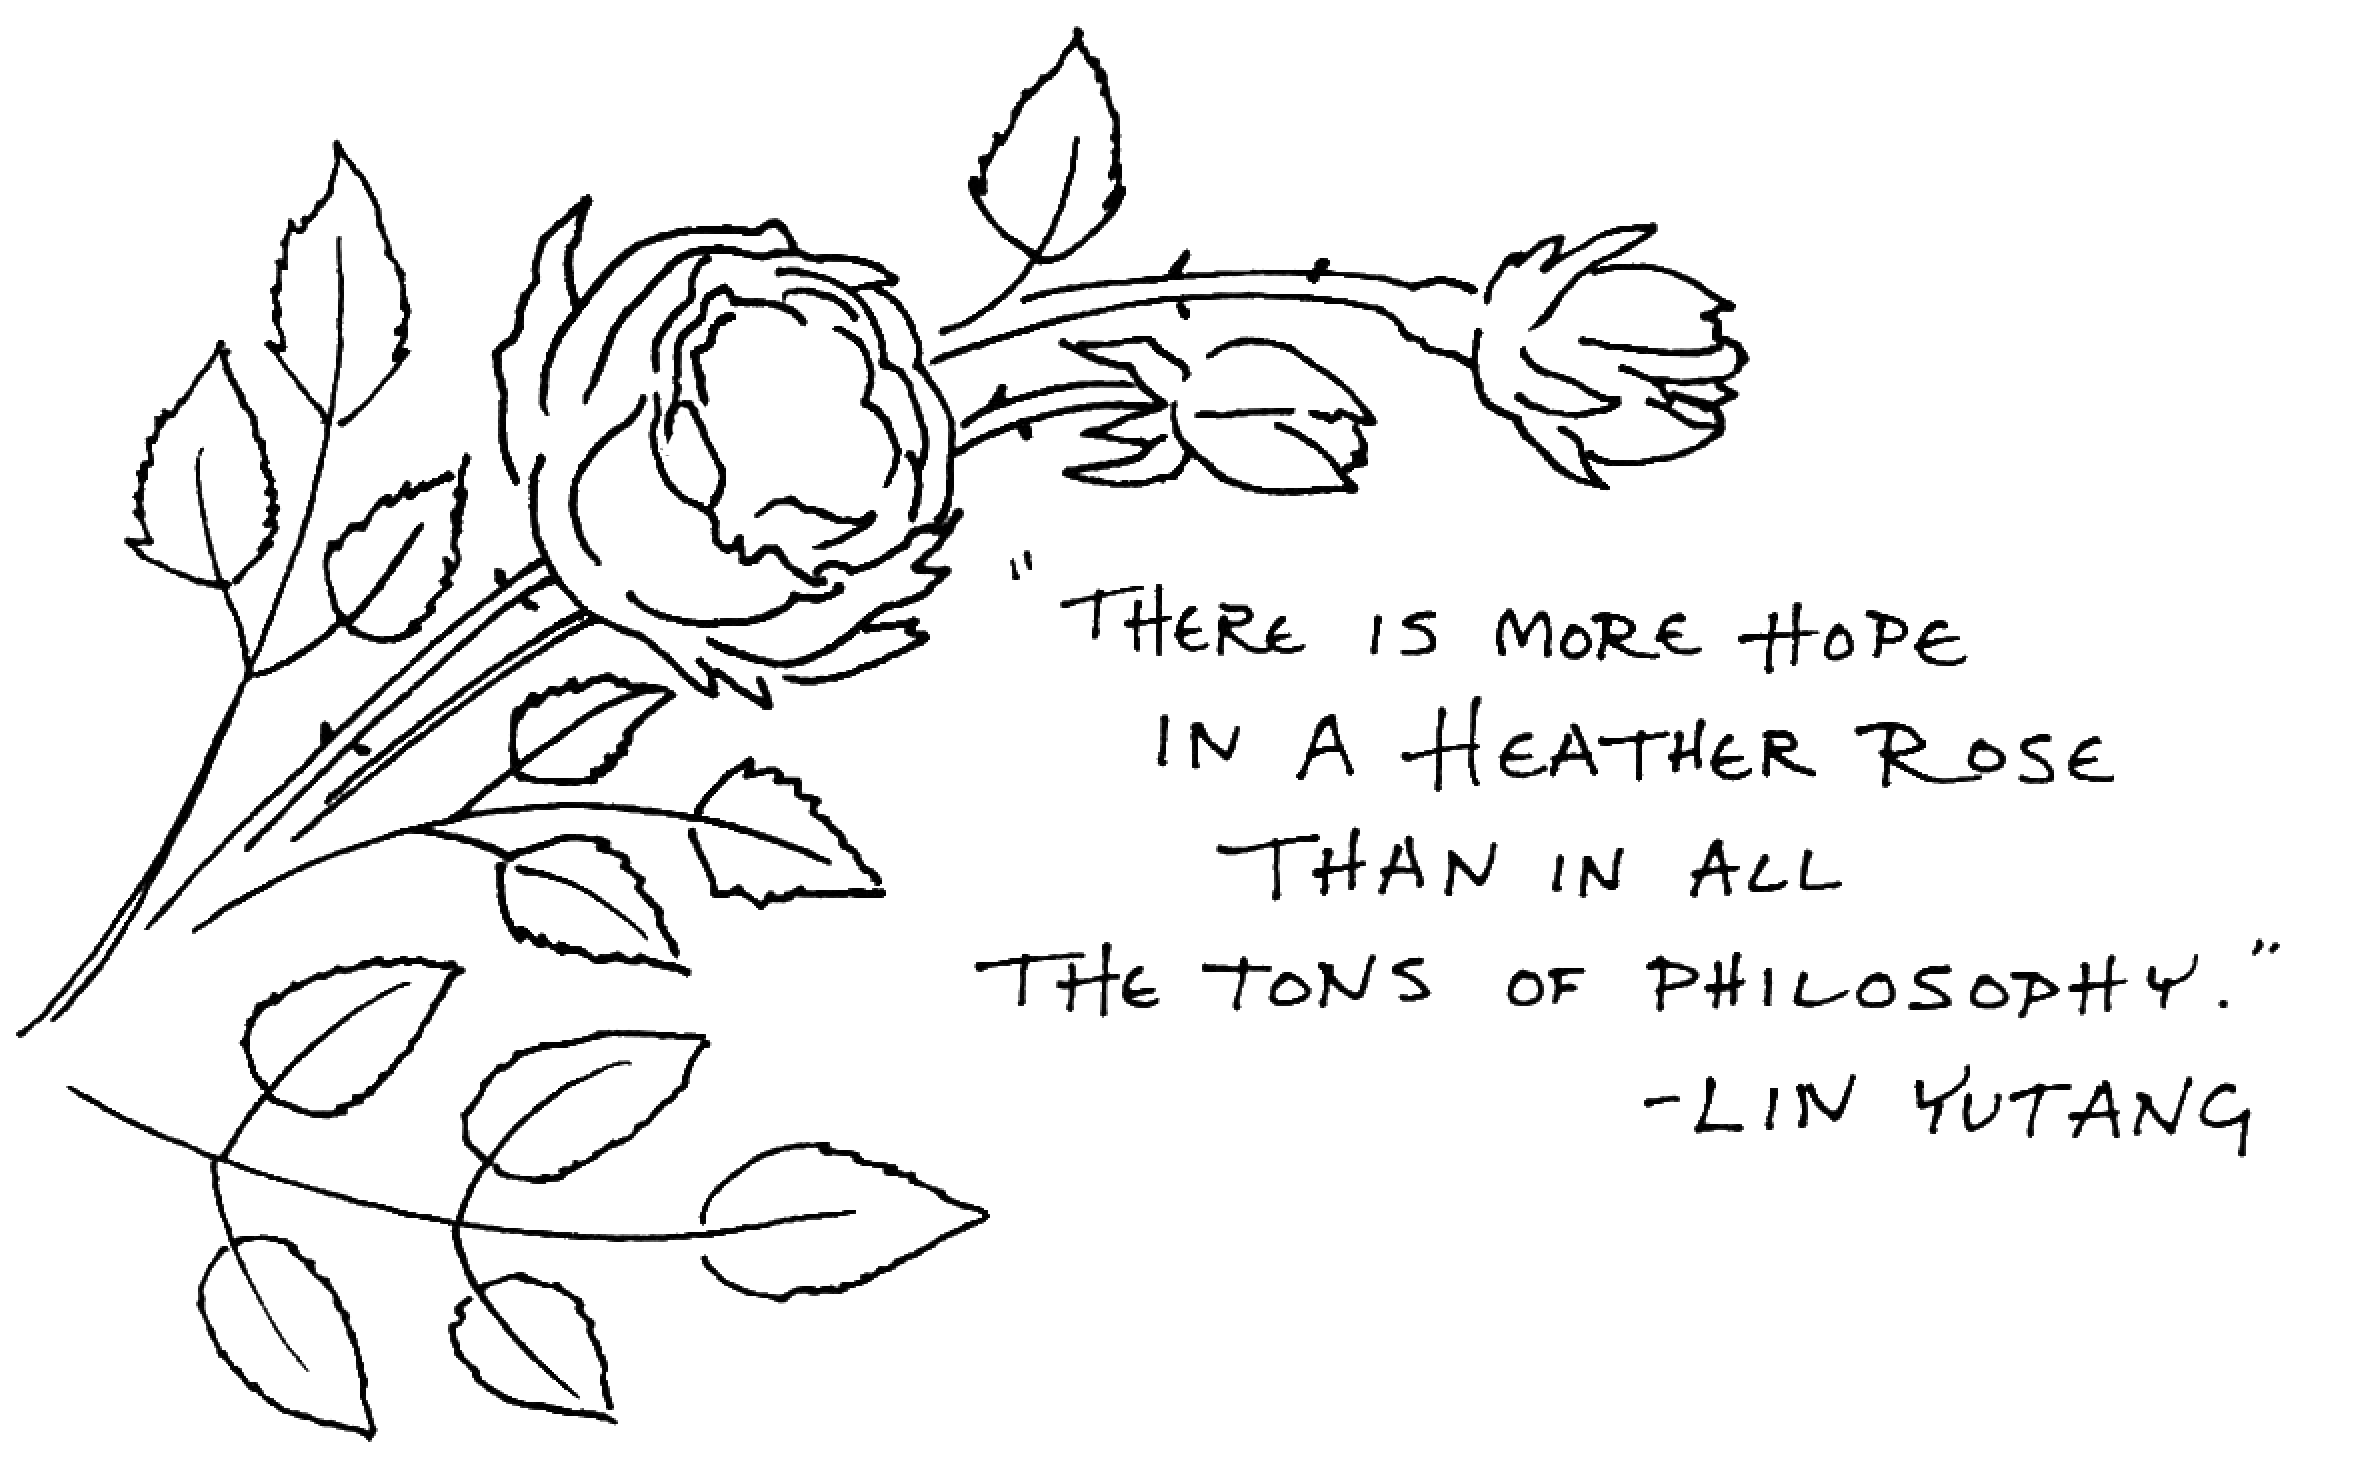 "THERE IS MORE HOPE
IN A HEATHER ROSE
THAN IN ALL
THE TONS OF PHILOSOPHY."
-LIN YUTANG